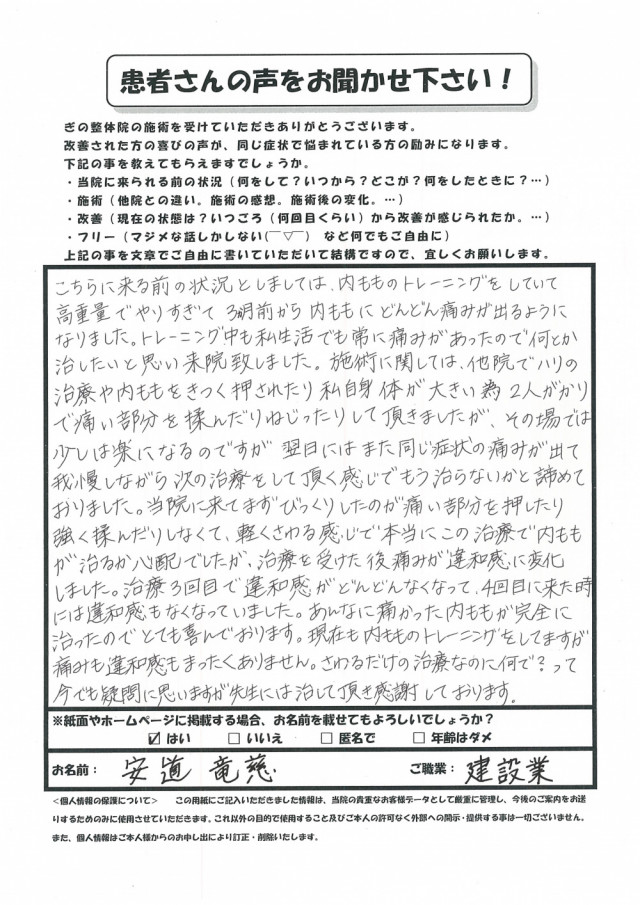 患者さんの声をお聞かせ下さい！
ぎの整体院の施術を受けていただきありがとうございます。
改善された方の喜びの声が、同じ症状で悩まれている方の励みになります。
下記の事を教えてもらえますでしょうか。
・当院に来られる前の状況（何をして？いつから？どこが？何をしたときに？…）
・施術（他院との違い。施術の感想。施術後の変化。…）
・改善（現在の状態は？いつごろ（何回目くらい）から改善が感じられたか。…）
・フリー（マジメな話しかしない(￣▽￣)　など何でもご自由に）
上記の事を文章でご自由に書いていただいて結構ですので、宜しくお願いします。
こちらに来る前の状況としましては、内もものトレーニングをしていて
高重量でやりすぎて 3ヶ月前から内ももにどんどん痛みが出るように
なりました。トレーニング中も私生活でも常に痛みがあったので何とか
治したいと思い来院致しました。施術に関しては、他院でハリの
治療や内ももをきつく押されたり私自身体が大きい為2人がかり
で痛い部分を揉んだりねじったりして頂きましたが、その場では
少しは楽になるのですが 翌日にはまた同じ症状の痛みが出て
我慢しながら次の治療をして頂く感じでもう治らないかと諦めて
おりました。当院に来てまずびっくりしたのが痛い部分を押したり
強く揉んだりしなくて、軽くさわる感じで本当にこの治療で内もも
が治るか心配でしたが、治療を受けた後痛みが違和感に変化
しました。治療3回目で違和感がどんどんなくなって、4回目に来た時
には違和感もなくなっていました。あんなに痛かった内ももが完全に
治ったのでとても喜んでおります。現在も内もものトレーニングをしてますが
痛みも違和感もまったくありません。さわるだけの治療なのに何で？って
今でも疑問に思いますが先生には治して頂き感謝しております。
※紙面やホームページに掲載する場合、お名前を載せてもよろしいでしょうか？
☑ はい　□ いいえ　□ 匿名で　□ 年齢はダメ
お名前： 安道 竜慈　ご職業： 建設業
＜個人情報の保護について＞　この用紙にご記入いただきました情報は、当院の貴重なお客様データとして厳重に管理し、今後のご案内をお送
りするためのみに使用させていただきます。これ以外の目的で使用すること及びご本人の許可なく外部への開示・提供する事は一切ございません。
また、個人情報はご本人様からのお申し出により訂正・削除いたします。